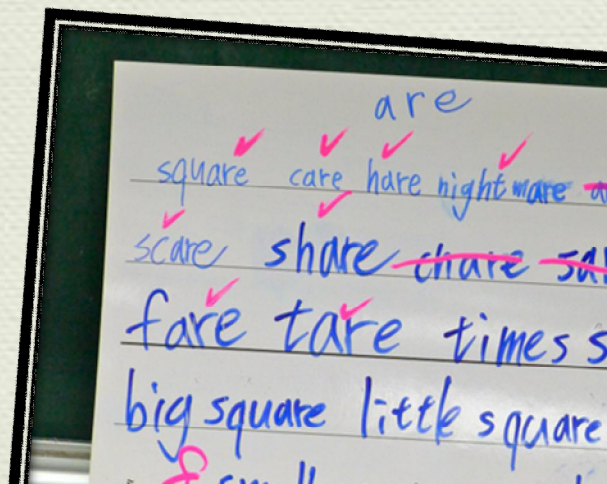 are
square care hare nightmare
scare share chare
fare tare times
big square little square